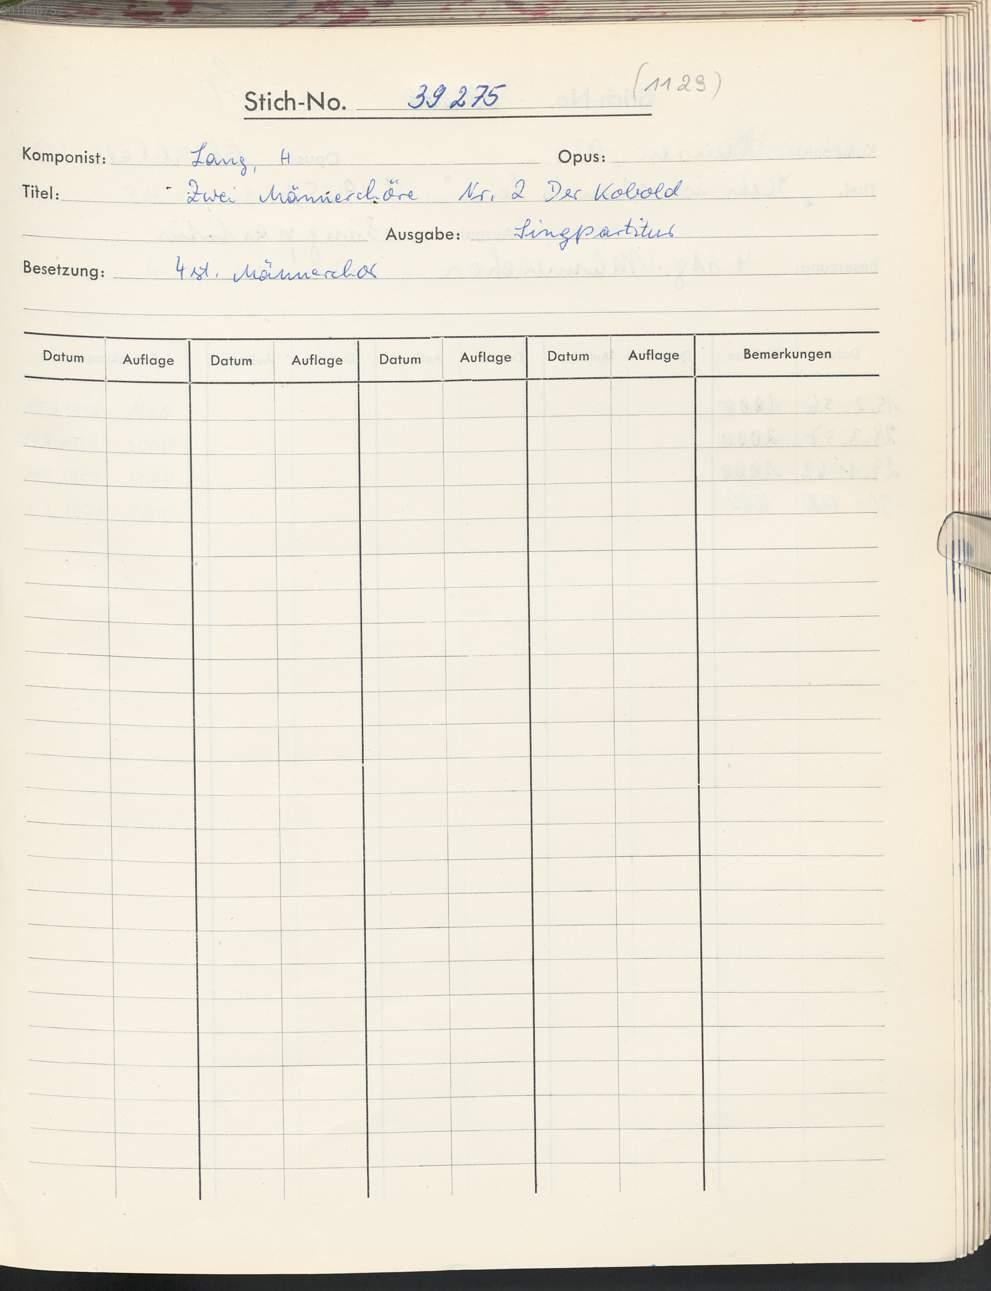 Stich-No. 39 275 (1129)
Komponist: Lang, H Opus:
Titel: Zwei Männerchöre Nr. 2 Der Kobold
Ausgabe: Singpartitur
Besetzung: 4 st. Männerchor
Datum Auflage Datum Auflage Datum Auflage Datum Auflage Bemerkungen